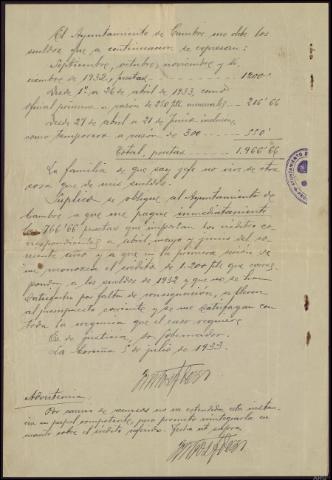 El Ayuntamiento de Cambre me debe los
sueldos que a continuación se expresan:
Septiembre, octubre, noviembre y di-
ciembre de 1932, pesetas 1200'
Desde 1º a 26 de abril de 1933, como
oficial primero a razón de 250 ptas mensuales 216'66
Desde 27 de abril a 21 de junio inclusive
como temporero a razón de 300 550'
Total, pesetas 1.966'66
La familia de que soy jefe no vive de otra
cosa que de mis sueldos.
Suplico se obligue al Ayuntamiento de
Cambre a que me pague inmediatamente
las 766'66 pesetas que importan los créditos co-
rrespondientes a abril, mayo y junio del co-
rriente año y a que en la primera sesión
me reconozca el crédito de 1.200 ptas que corres-
ponden a los sueldos de 1932 y que no se han
satisfecho por falta de consignación, se lleven
al presupuesto corriente y se me satisfagan con
toda la urgencia que el caso requiere
Es de justicia, Sr. Gobernador.
La Coruña 5 de julio de 1933.
Advertencia
Por carecer de recursos no va extendida esta instan-
cia en papel competente, pero prometo reintegrarla en
cuanto cobre el crédito referido. Fecha ut supra
AYUNTAMIENTO